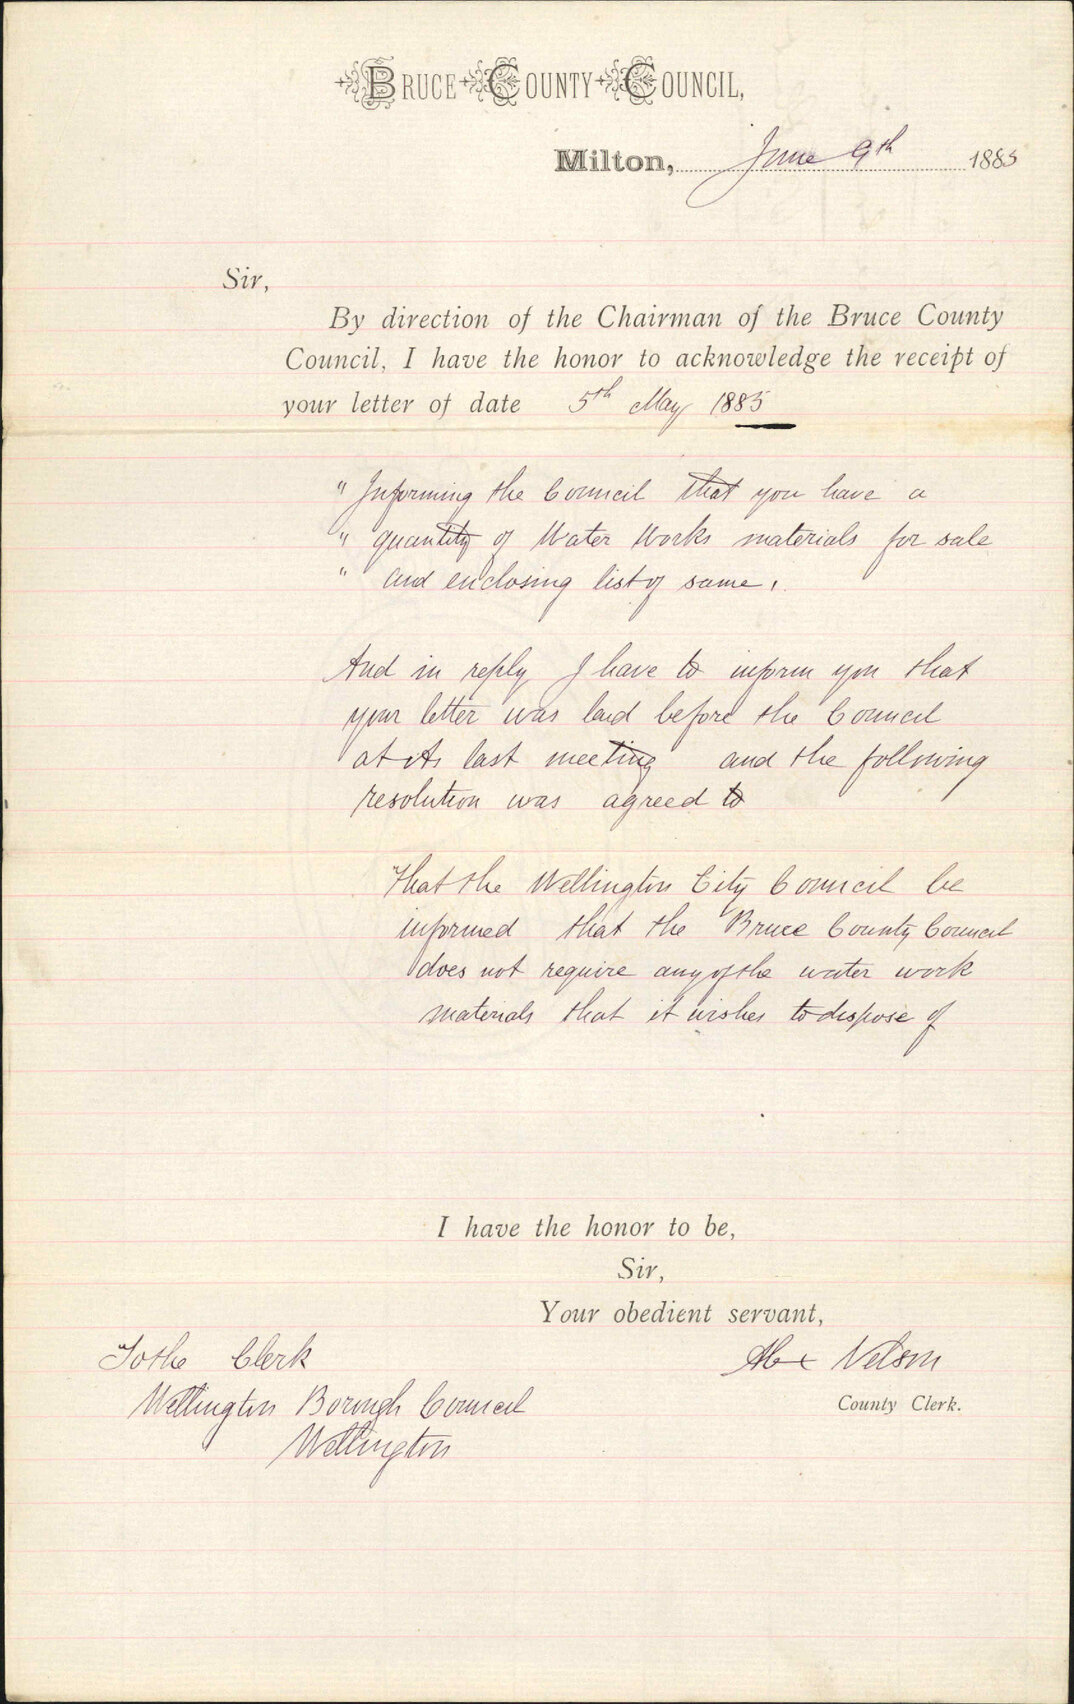 BRUCE COUNTY COUNCIL,
Milton, June 9th 1885
Sir,
By direction of the Chairman of the Bruce County
Council, I have the honor to acknowledge the receipt of
your letter of date 5th May 1885
" Informing the Council that you have a
" quantity of Water Works materials for sale
" and enclosing list of same.
And in reply I have to inform you that
your letter was laid before the Council
at its last meeting and the following
resolution was agreed to
That the Wellington City Council be
informed that the Bruce County Council
does not require any of the water work
materials that it wishes to dispose of
I have the honor to be,
Sir,
Your obedient servant,
To the Clerk
Alex Nelson
Wellington Borough Council
County Clerk.
Wellington